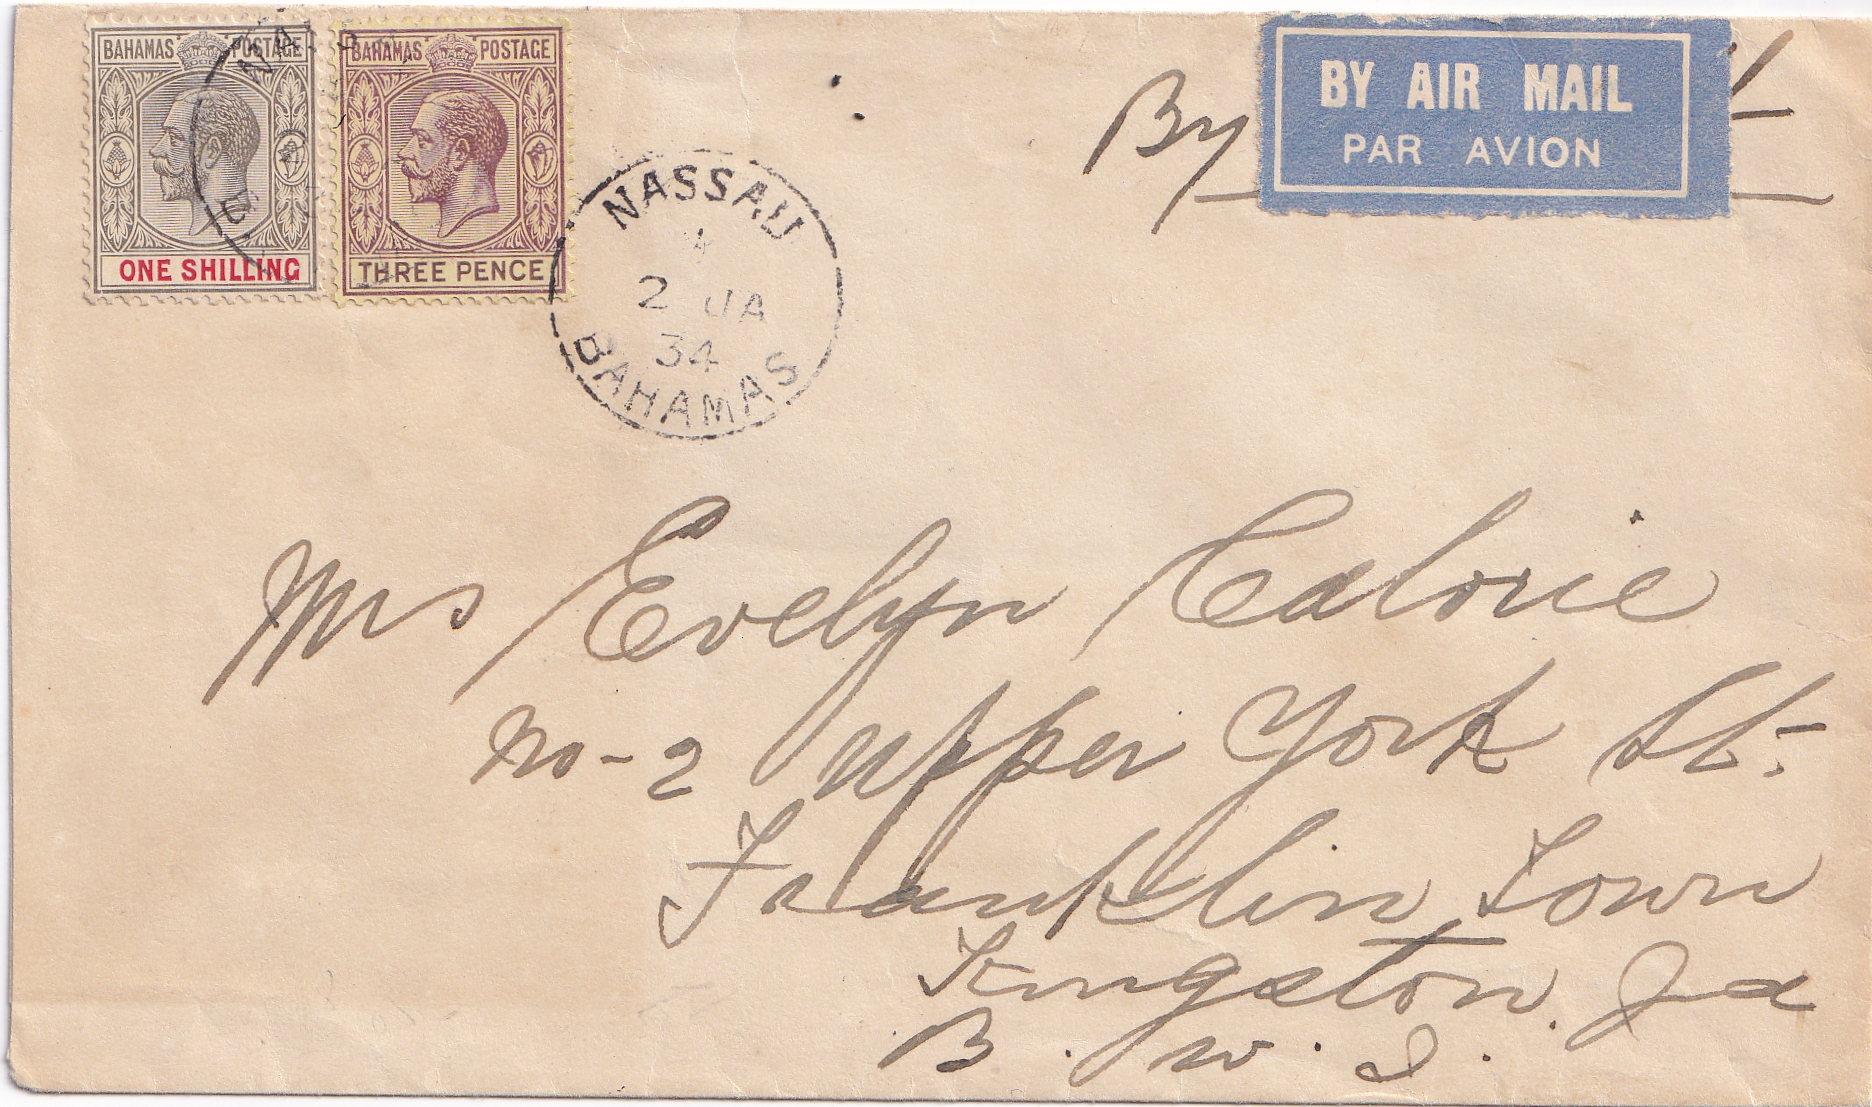 BAHAMAS POSTAGE
ONE SHILLING
BAHAMAS POSTAGE
THREE PENCE
NASSAU
2 JA
34
BAHAMAS
By
BY AIR MAIL
PAR AVION
Mrs Evelyn Calorie
No-2 Upper York St.
Franklin Town
Kingston. Ja
B. W. I.